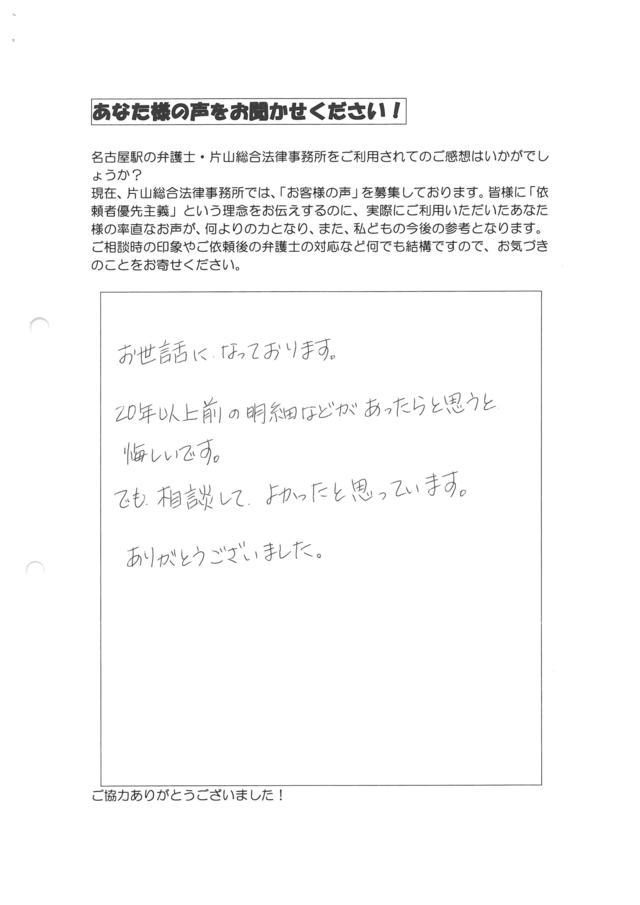 あなた様の声をお聞かせください！
名古屋駅の弁護士・片山総合法律事務所をご利用されてのご感想はいかがでし
ょうか？
現在、片山総合法律事務所では、「お客様の声」を募集しております。皆様に「依
頼者優先主義」という理念をお伝えするのに、実際にご利用いただいたあなた
様の率直なお声が、何よりの力となり、また、私どもの今後の参考となります。
ご相談時の印象やご依頼後の弁護士の対応など何でも結構ですので、お気づき
のことをお寄せください。
お世話に、なっております。
20年以上前の明細などがあったらと思うと
悔しいです。
でも、相談して、よかったと思っています。
ありがとうございました。
ご協力ありがとうございました！